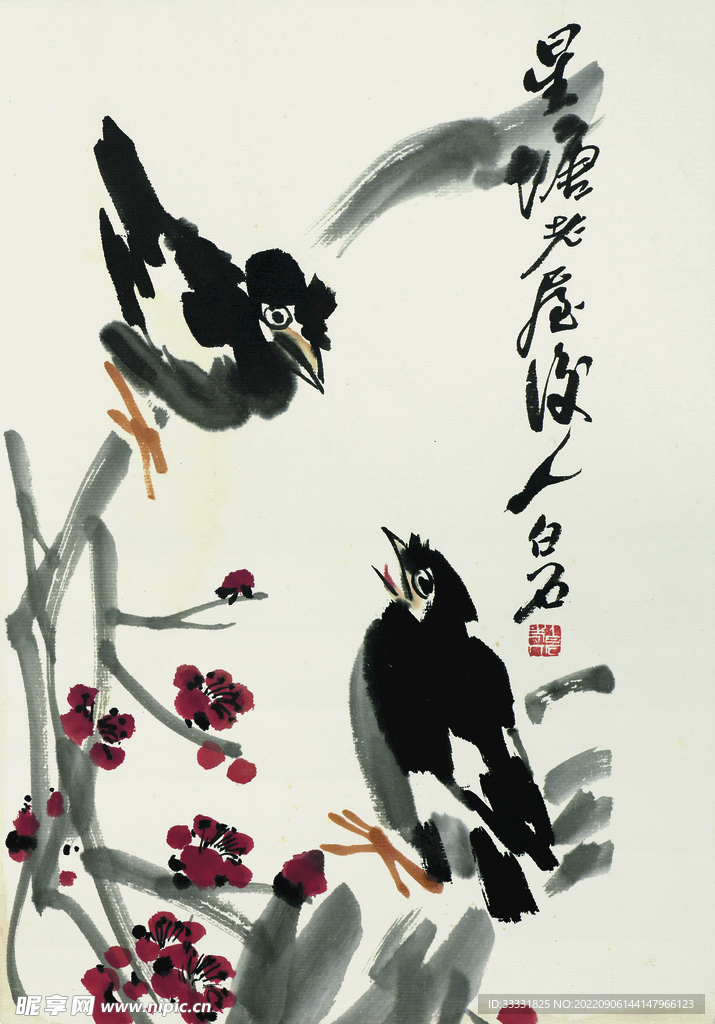 星塘老屋後人白石
昵享网 www.nipic.cn
ID:33331825 NO:20220906144147966123